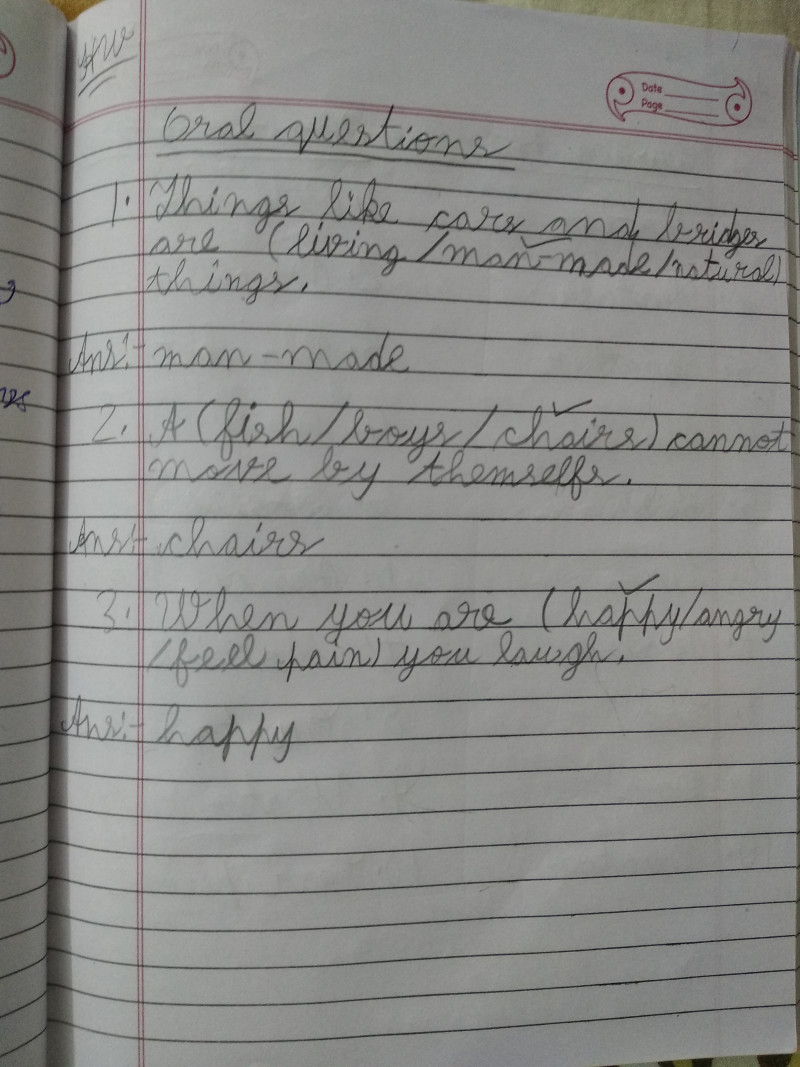 HW
Date
Page
Oral questions
1. Things like cars and bridges
are (living/man-made/natural)
things.
Ans:- man-made
2. A (fish/boys/chairs) cannot
move by themselfs.
Ans:- chairs
3. When you are (happy/angry
/feel pain) you laugh.
Ans:- happy